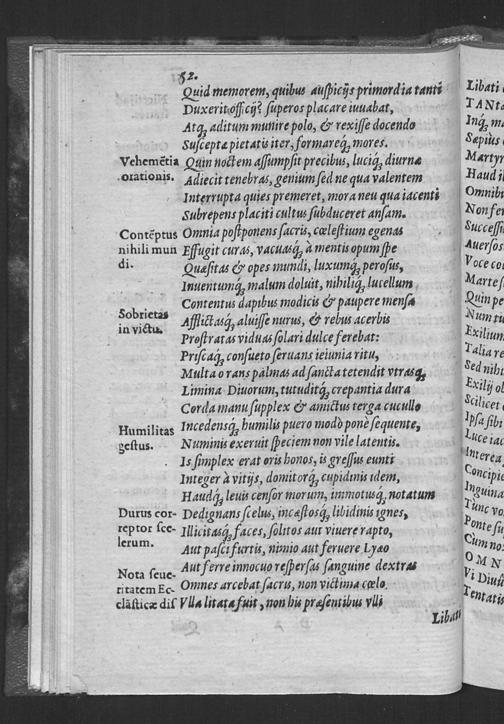 52.
Quid memorem, quibus auſpicijs primordia tanti
Duxerit officij? ſuperos placare iuuabat,
Atq́ꝫ aditum munire polo, & rexiſſe docendo
Suſcepta pietatis iter, formareq́ꝫ mores.
Vehemētia orationis.
Quin noctem aſſumpſit precibus, luciq́ꝫ diurnæ
Adiecit tenebras, genium ſed ne qua valentem
Interrupta quies premeret, mora neu qua iacenti
Subrepens placiti cultus ſubduceret anſam.
Contēptus nihili mun di.
Omnia poſtponens ſacris, cœleſtium egenas
Effugit curas, vacuasq́ꝫ à mentis opum ſpe
Quæſitas & opes mundi, luxumq́ꝫ peroſus,
Inuentumq́ꝫ malum doluit, nihiliq́ꝫ lucellum
Contentus dapibus modicis & paupere menſa
Sobrietas in victu.
Afflictasq́ꝫ aluiſſe nurus, & rebus acerbis
Proſtratas viduas ſolari dulce ferebat:
Priſcaq́ꝫ conſueto ſeruans ieiunia ritu,
Multa orans palmas ad ſancta tetendit vtrasq́ꝫ
Limina Diuorum, tutuditq́ꝫ crepantia dura
Corda manu ſupplex & amictus terga cucullo
Humilitas geſtus.
Incedensq́ꝫ humilis puero modò ponè ſequente,
Numinis exeruit ſpeciem non vile latentis.
Is ſimplex erat oris honos, is greſſus eunti
Integer à vitijs, domitorq́ꝫ cupidinis idem,
Haudq́ꝫ leuis cenſor morum, immotusq́ꝫ notatum
Durus correptor ſcelerum.
Dedignans ſcelus, incæſtosq́ꝫ libidinis ignes,
Illicitasq́ꝫ faces, ſolitos aut viuere rapto,
Aut paſci furtis, nimio aut feruere Lyæo
Aut ferre innocuo reſperſas ſanguine dextras
Nota ſeueritatem Eccläſticæ diſ
Omnes arcebat ſacris, non victima cœlo
Vlla litata fuit, non his præſentibus vlli
Libati